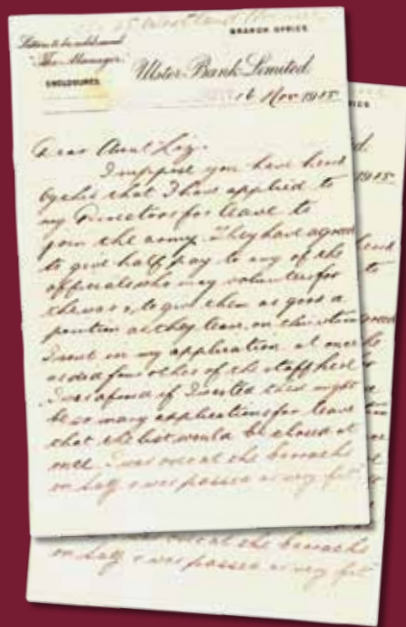 25 Westland
BRANCH OFFICE
Letters to be addressed
"The Manager"
ENCLOSURES
Ulster Bank Limited.
16 Nov 1915
Dear Aunt Liz.
I suppose you have heard
by this that I have applied to
my Directors for leave to
join the army. They have agreed
to give half pay to any of the
officials who may volunteer for
the war & to give them as good a
position as they leave, on this
I sent in my application at once
as did four other of the staff here
I was afraid if I waited there might
be so many applications for leave
that the list would be closed at
once. I was over at the barracks
on Satý & was passed as very fit
1915
on Satý & was passed as very fit